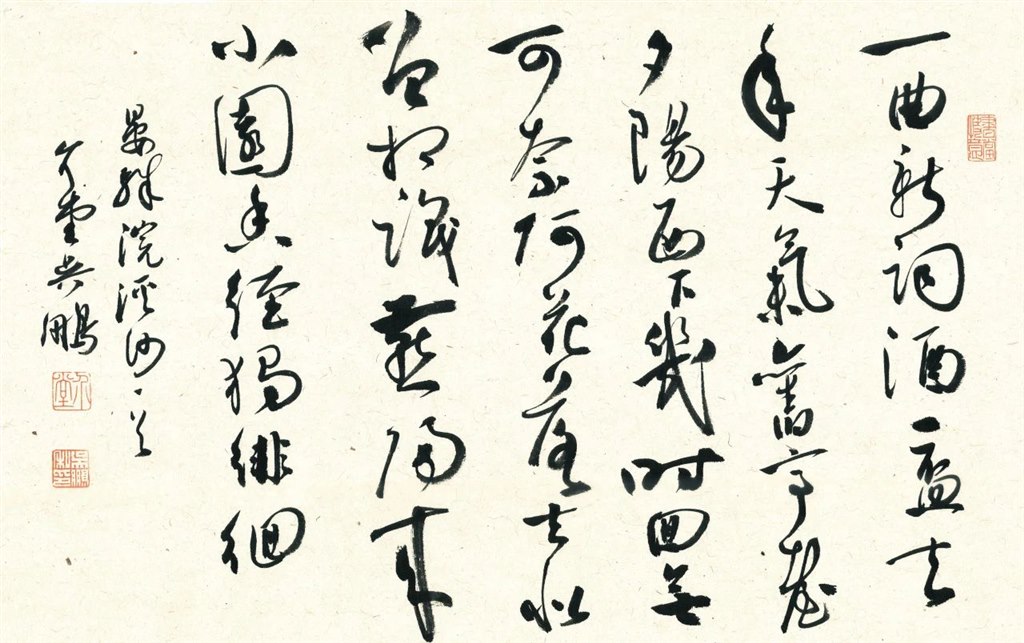 一曲新詞酒一盃去
年天氣舊亭臺
夕陽西下幾時回無
可奈何花落去似
曾相識燕歸來
小園香徑獨徘徊
晏殊浣溪沙一首
介堂吳鵬